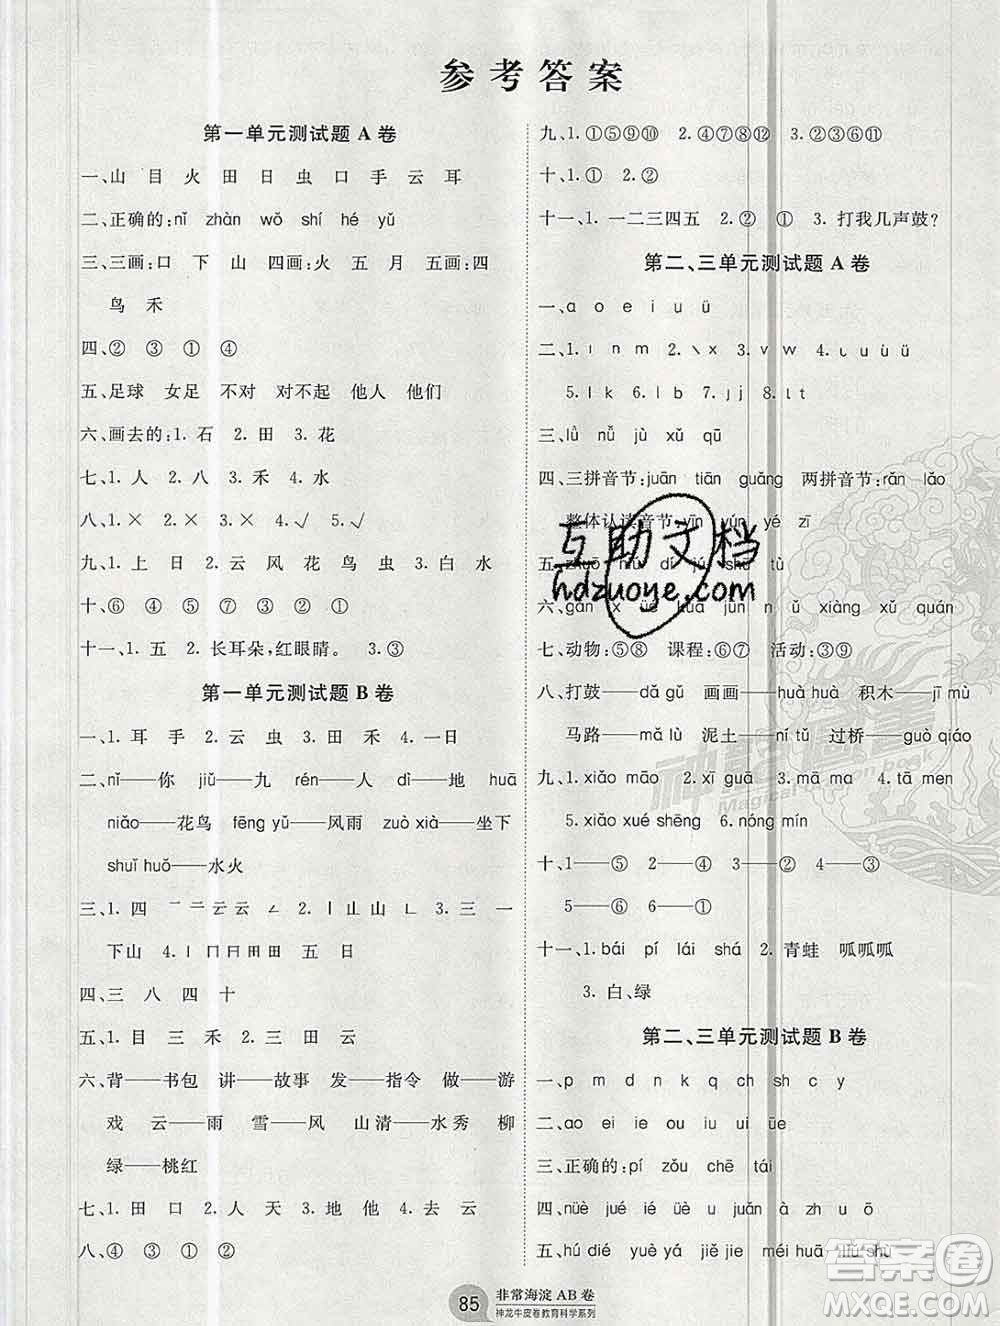 参考答案
第一单元测试题 A 卷
一、山 目 火 田 日 虫 口 手 云 耳
二、正确的:nǐ zhàn wǒ shí hé yǔ
三、三画:口 下 山 四画:火 五 月 五画:四
鸟 禾
四、② ③ ① ④
五、足球 女足 不对 对不起 他人 他们
六、画去的:1. 石 2. 田 3. 花
七、1. 人 2. 八 3. 禾 4. 水
八、1. × 2. × 3. × 4. √ 5. √
九、1. 上 日 2. 云 风 花 鸟 虫 3. 白 水
十、⑥ ④ ⑤ ③ ② ①
十一、1. 五 2. 长耳朵,红眼睛。 3. ③
第一单元测试题 B 卷
一、1. 耳 手 2. 云 虫 3. 田 禾 4. 一日
二、nǐ——你 jiǔ——九 rén——人 dì——地 huā
niǎo——花鸟 fēng yǔ——风雨 zuò xià——坐下
shuǐ huǒ——水火
三、1. 四 一 二 云 云 ㄥ 2. 丨 山 山 ㄴ 3. 三 一
下山 4. 丨 冂 日 田 田 五 日
四、三 八 四 十
五、1. 目 三 禾 2. 三 田 云
六、背——书包 讲——故事 发——指令 做——游
戏 云——雨 雪——风 山清——水秀 柳
绿——桃红
七、1. 田 口 2. 人 天 3. 地 他 4. 去 云
八、④ ③ ① ②
九、1. ①⑤⑨⑩ 2. ④⑦⑧⑫ 3. ②③⑥⑪
十、1. ① 2. ②
十一、1. 一二三四五 2. ② ① 3. 打我几声鼓?
第二、三单元测试题 A 卷
一、ɑ o e i u ü
二、1. ı n m 2. ヽ x 3. w 4. ɩ u ù ü
5. l k 6. l b 7. j j 8. ɩ t
三、lǜ nǚ jù xǔ qū
四、三拼音节:juān tiān guǎng 两拼音节:rǎn lǎo
整体认读音节:yīn yún yé zī
五、zhuō hú dì shù tù
六、gān x kuā jūn n ǔ xiǎo xǔ quán
七、动物:⑤⑧ 课程:⑥⑦ 活动:③⑨
八、打鼓——dǎ gǔ 画画——huà huà 积木——jī mù
马路——mǎ lù 泥土——ní tǔ 过桥——guò qiáo
九、1. xiǎo māo 2. xī guā 3. mā ma 4. tā men
5. xiǎo xué shēng 6. nóng mín
十、1——⑤ 2——④ 3——② 4——③
5——⑥ 6——①
十一、1. bái pí lái shá 2. 青蛙 呱呱呱
3. 白、绿
第二、三单元测试题 B 卷
一、p m d n k q ch sh c y
二、ɑo ei ie ou iu ui üe
三、正确的:pí zǒu chē tái
四、nüè jué ié üè u juǎn à zhuā ō
五、hú dié yuè yá jiě jie méi huā liǔ shù
互助文档
hdzuoye.com
神龙牛皮卷
答案圈
MXQE.COM
85 非常海淀 AB 卷
神龙牛皮卷教育科学系列